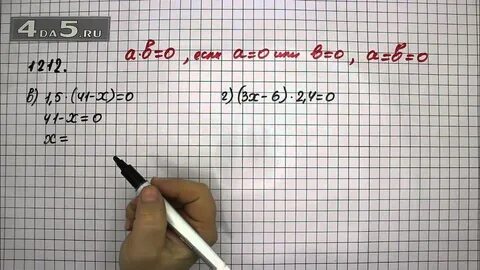 4DA5.RU
a·b=0, если a=0 или b=0, a=b=0
1212.
в) 1,5·(41-x)=0
41-x=0
x=
г) (3x-6)·2,4=0